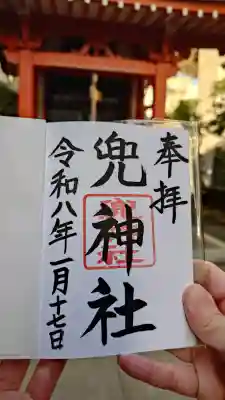 奉拝
兜神社
令和八年一月十七日